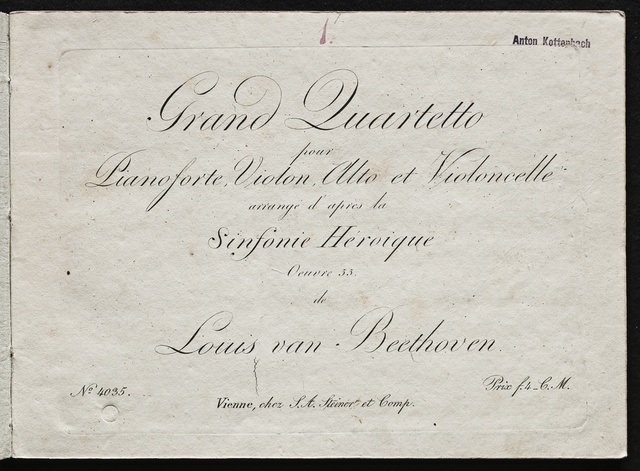 1.
Anton Kottenbach
Grand Quartetto
pour
Pianoforte, Violon, Alto et Violoncelle
arrangé d'après la
Sinfonie Héroique
Oeuvre 55.
de
Louis van Beethoven.
No 4035.
Prix f.4_C.M.
Vienne, chez S.A. Steiner et Comp.